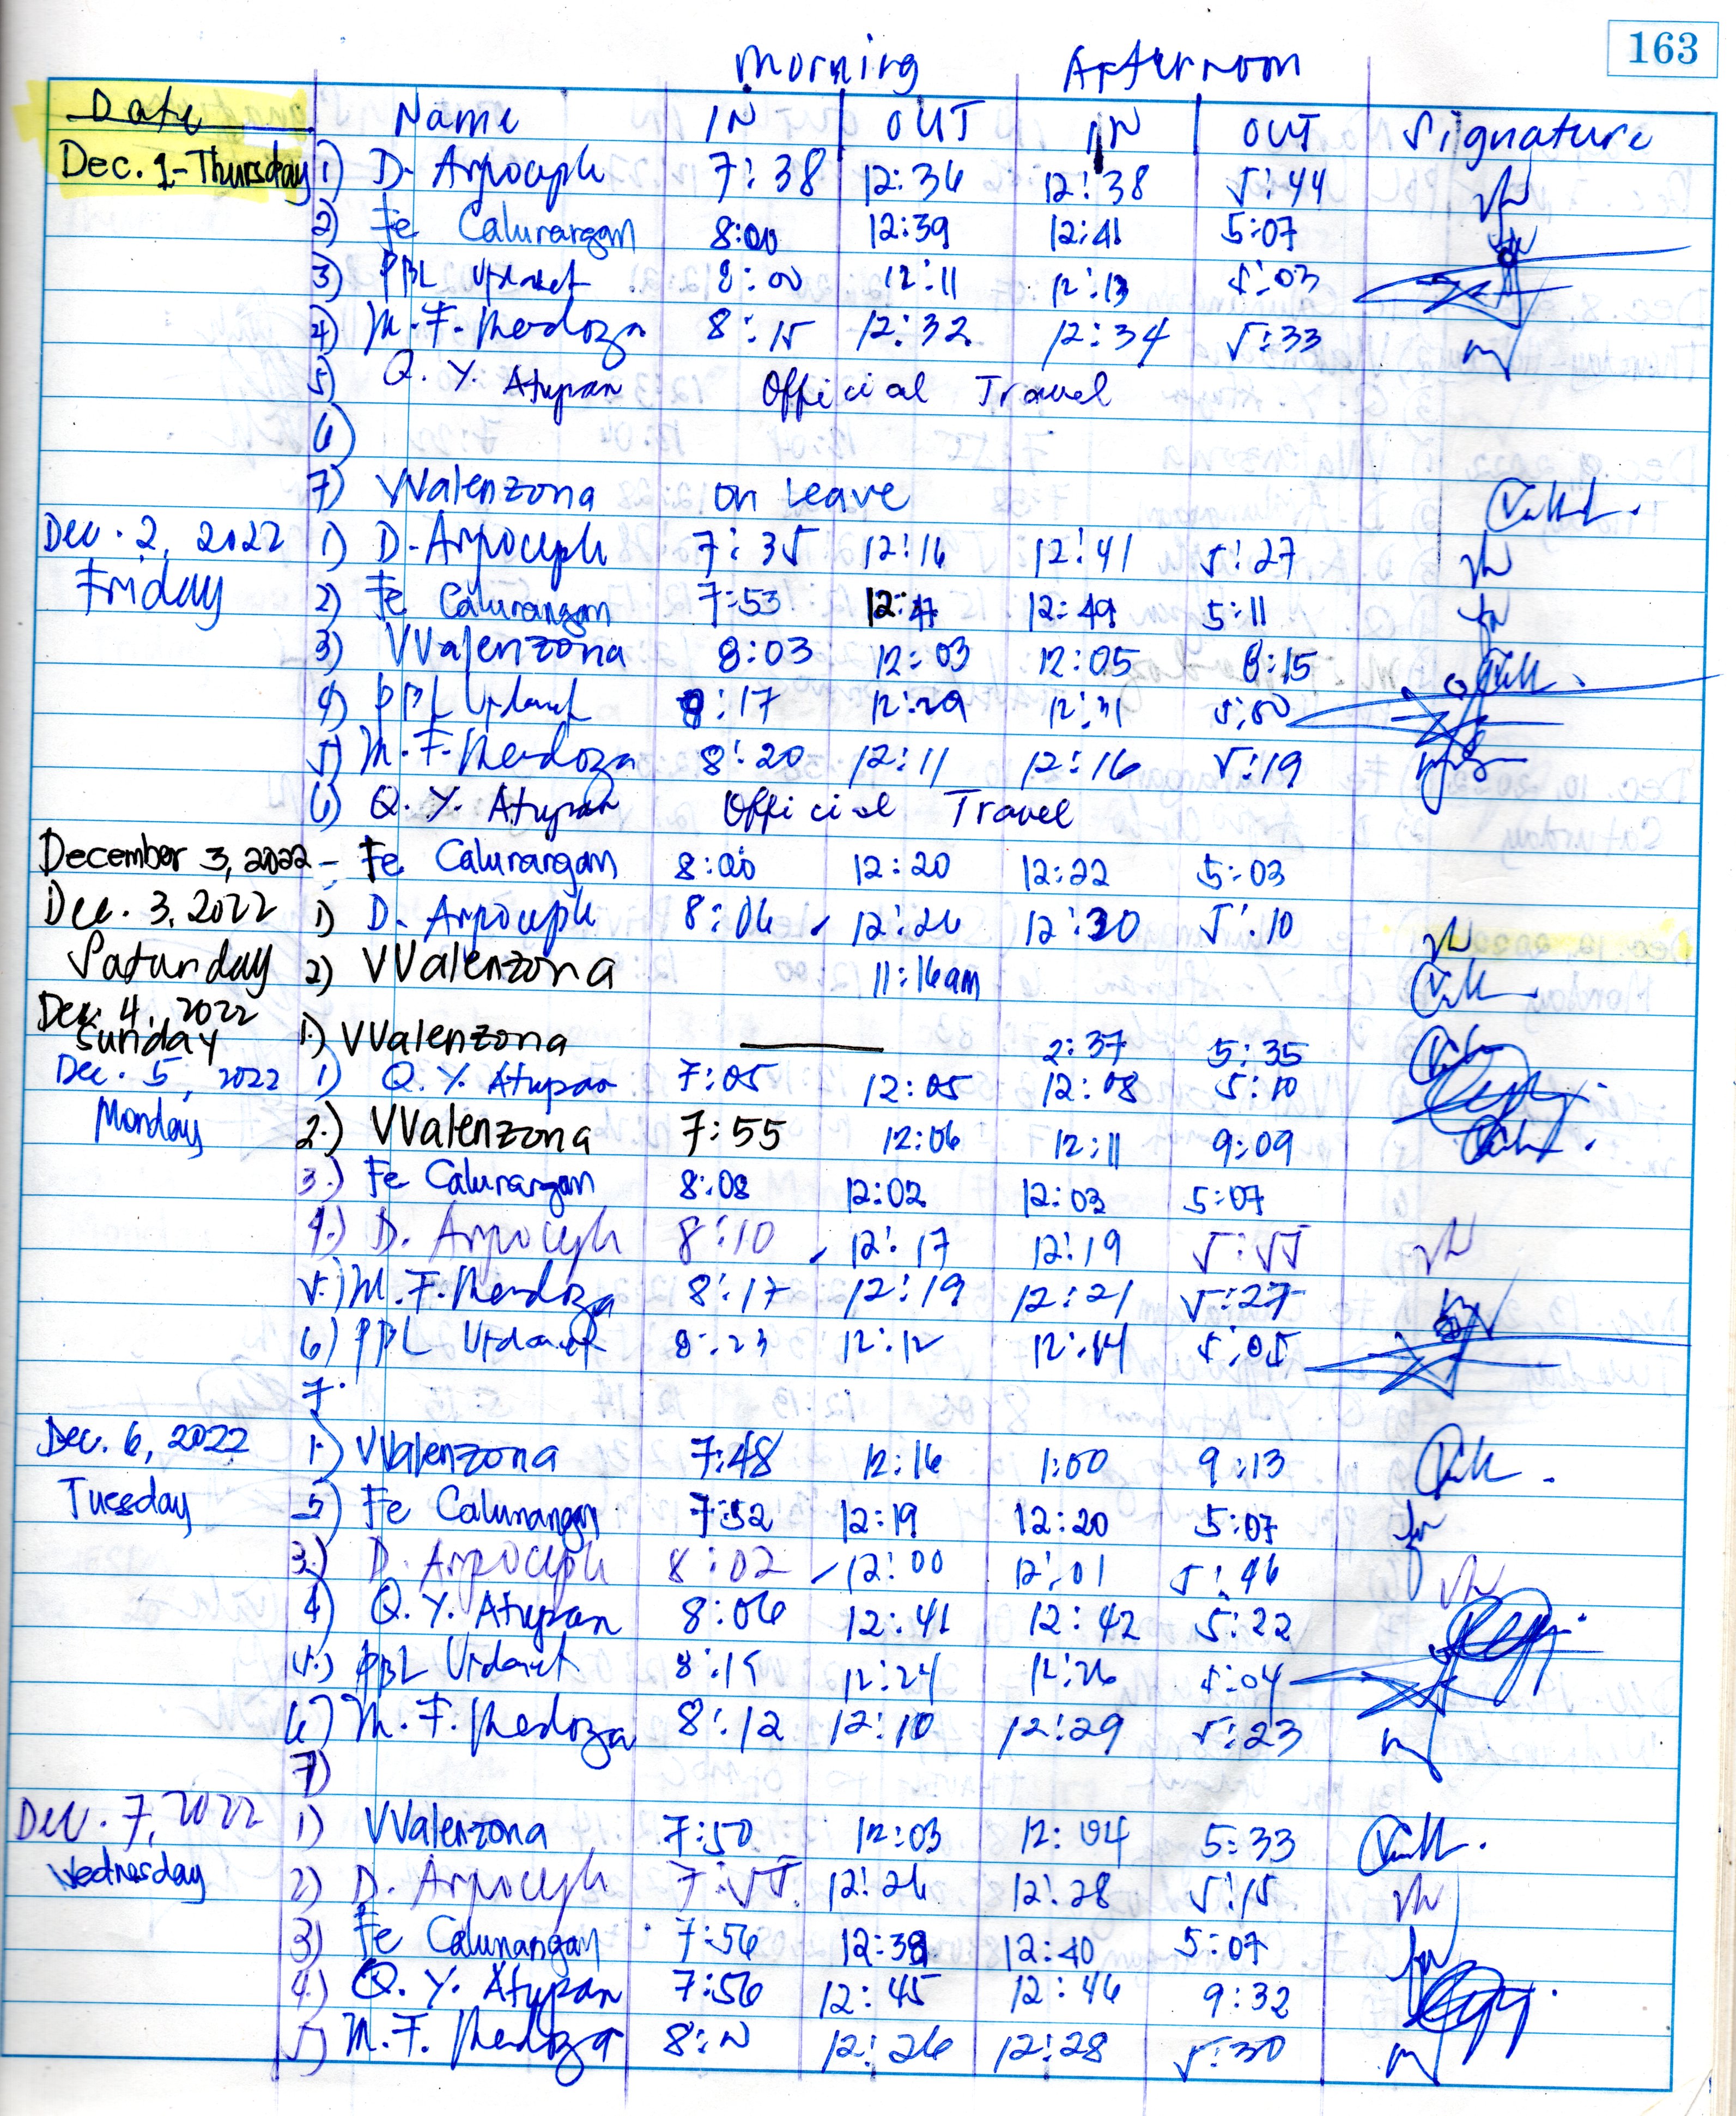 163
Morning Afternoon
Date Name IN OUT IN OUT Signature
Dec. 1-Thursday 1) D. Arpoceph 7:38 12:36 12:38 5:44
2) Fe Calunangan 8:00 12:39 12:41 5:07
3) PBL 8:00 12:11 12:13 5:03
4) M. F. Mendoza 8:15 12:32 12:34 5:33
5) Q. Y. Atupan Official Travel
6)
7) VValenzona on Leave
Dec. 2, 2022 1) D. Arpoceph 7:35 12:16 12:41 5:27
Friday 2) Fe Calunangan 7:53 12:47 12:49 5:11
3) VValenzona 8:03 12:03 12:05 8:15
4) PBL :17 12:29 12:31 5:00
5) M. F. Mendoza 8:20 12:11 12:16 5:19
6) Q. Y. Atupan Official Travel
December 3, 2022 - Fe Calunangan 8:00 12:20 12:22 5:03
Dec. 3, 2022 1) D. Arpoceph 8:06 12:26 12:30 5:10
Saturday 2) VValenzona 11:16am
Dec. 4, 2022
Sunday 1.) VValenzona 2:37 5:35
Dec. 5, 2022 1) Q. Y. Atupan 7:05 12:05 12:08 5:10
Monday 2.) VValenzona 7:55 12:06 12:11 9:09
3.) Fe Calunangan 8:08 12:02 12:03 5:07
4.) D. Arpoceph 8:10 12:17 12:19 5:55
5.) M. F. Mendoza 8:17 12:19 12:21 5:27
6) PBL 8:23 12:12 12:14 5:05
7.
Dec. 6, 2022 1.) VValenzona 7:48 12:16 1:00 9:13
Tuesday 2) Fe Calunangan 7:52 12:19 12:20 5:07
3.) D. Arpoceph 8:02 12:00 12:01 5:46
4) Q. Y. Atupan 8:06 12:41 12:42 5:22
5.) PBL 8:15 12:24 12:26 5:04
6) M. F. Mendoza 8:12 12:10 12:29 5:23
7)
Dec. 7, 2022 1) VValenzona 7:50 12:03 12:04 5:33
Wednesday 2) D. Arpoceph 7:55 12:26 12:28 5:15
3) Fe Calunangan 7:56 12:39 12:40 5:07
4.) Q. Y. Atupan 7:56 12:45 12:46 9:32
5) M. F. Mendoza 12:26 12:28 5:30